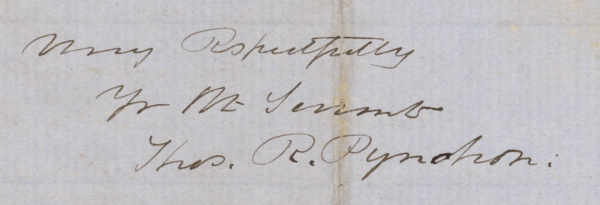 Very Respectfully
Yr Ob Servant
Thos. R. Pynchon.